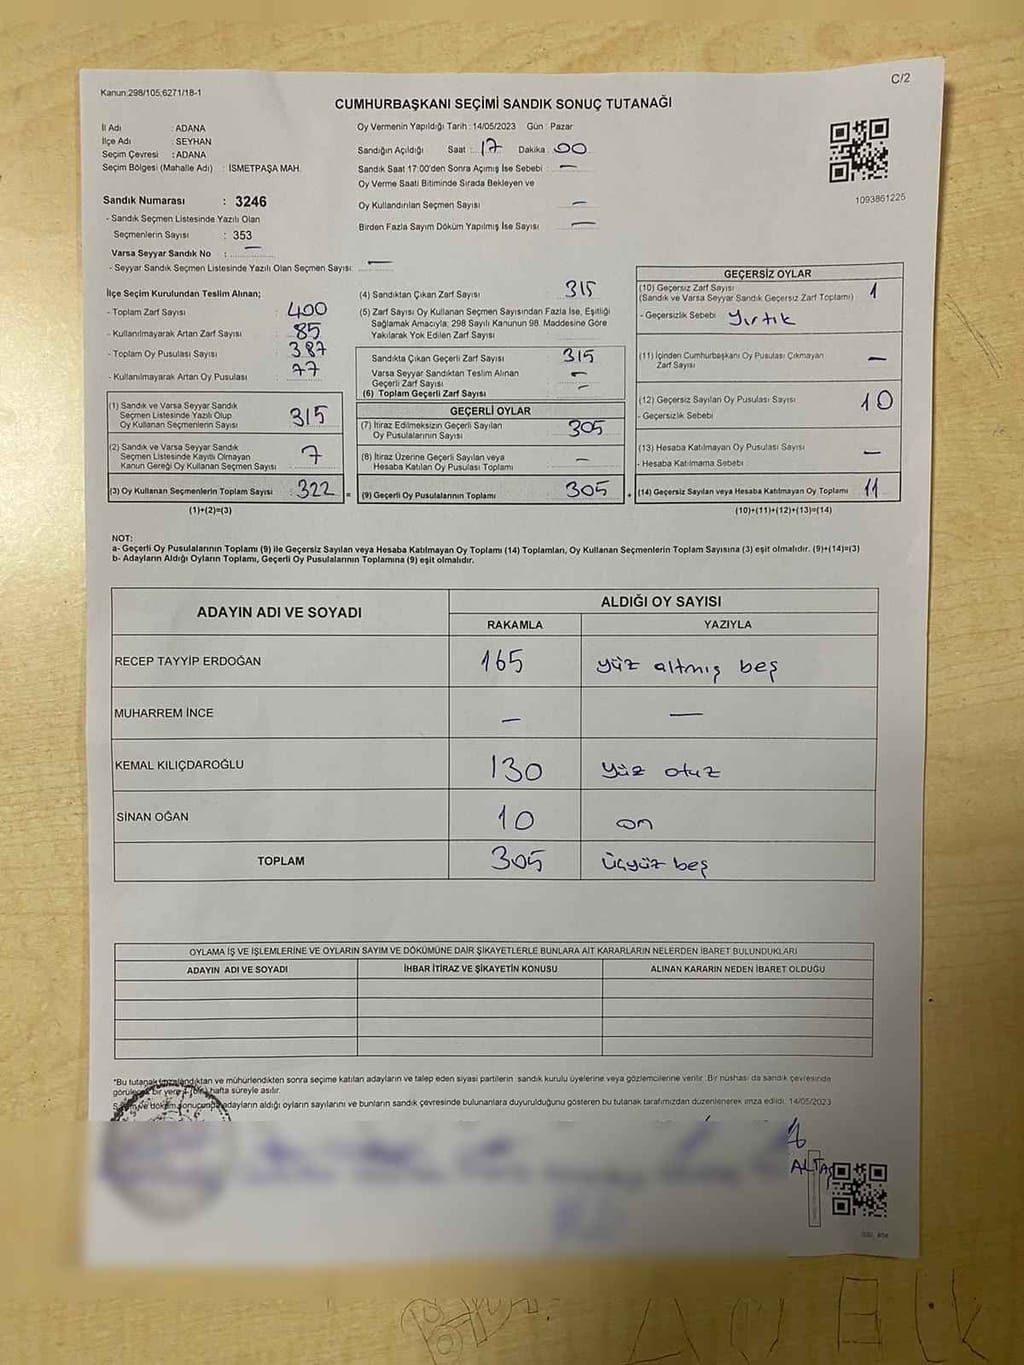 C/2
Kanun:298/105,6271/18-1
CUMHURBAŞKANI SEÇİMİ SANDIK SONUÇ TUTANAĞI
İl Adı : ADANA
İlçe Adı : SEYHAN
Seçim Çevresi : ADANA
Seçim Bölgesi (Mahalle Adı) : İSMETPAŞA MAH.
Sandık Numarası : 3246
- Sandık Seçmen Listesinde Yazılı Olan
Seçmenlerin Sayısı : 353
Varsa Seyyar Sandık No : —
- Seyyar Sandık Seçmen Listesinde Yazılı Olan Seçmen Sayısı: —
Oy Vermenin Yapıldığı Tarih : 14/05/2023 Gün : Pazar
Sandığın Açıldığı Saat : 17 Dakika 00
Sandık Saat 17:00'den Sonra Açımış İse Sebebi —
Oy Verme Saati Bitiminde Sırada Bekleyen ve
Oy Kullandırılan Seçmen Sayısı —
Birden Fazla Sayım Döküm Yapılmış İse Sayısı —
1093861225
İlçe Seçim Kurulundan Teslim Alınan;
- Toplam Zarf Sayısı : 400
- Kullanılmayarak Artan Zarf Sayısı : 85
- Toplam Oy Pusulası Sayısı : 387
- Kullanılmayarak Artan Oy Pusulası : 77
(1) Sandık ve Varsa Seyyar Sandık
Seçmen Listesinde Yazılı Olup
Oy Kullanan Seçmenlerin Sayısı : 315
(2) Sandık ve Varsa Seyyar Sandık
Seçmen Listesinde Kayıtlı Olmayan
Kanun Gereği Oy Kullanan Seçmen Sayısı : 7
(3) Oy Kullanan Seçmenlerin Toplam Sayısı : 322 =
(1)+(2)=(3)
(4) Sandıktan Çıkan Zarf Sayısı 315
(5) Zarf Sayısı Oy Kullanan Seçmen Sayısından Fazla İse, Eşitliği
Sağlamak Amacıyla, 298 Sayılı Kanunun 98. Maddesine Göre
Yakılarak Yok Edilen Zarf Sayısı
Sandıkta Çıkan Geçerli Zarf Sayısı 315
Varsa Seyyar Sandıktan Teslim Alınan —
Geçerli Zarf Sayısı
(6) Toplam Geçerli Zarf Sayısı —
GEÇERLİ OYLAR
(7) İtiraz Edilmeksizin Geçerli Sayılan
Oy Pusulalarının Sayısı 305
(8) İtiraz Üzerine Geçerli Sayılan veya
Hesaba Katılan Oy Pusulası Toplamı —
(9) Geçerli Oy Pusulalarının Toplamı 305
GEÇERSİZ OYLAR
(10) Geçersiz Zarf Sayısı 1
(Sandık ve Varsa Seyyar Sandık Geçersiz Zarf Toplamı)
- Geçersizlik Sebebi Yırtık
(11) İçinden Cumhurbaşkanı Oy Pusulası Çıkmayan
Zarf Sayısı —
(12) Geçersiz Sayılan Oy Pusulası Sayısı 10
- Geçersizlik Sebebi
(13) Hesaba Katılmayan Oy Pusulası Sayısı —
- Hesaba Katılmama Sebebi
(14) Geçersiz Sayılan veya Hesaba Katılmayan Oy Toplamı 11
(10)+(11)+(12)+(13)=(14)
NOT:
a- Geçerli Oy Pusulalarının Toplamı (9) ile Geçersiz Sayılan veya Hesaba Katılmayan Oy Toplamı (14) Toplamları, Oy Kullanan Seçmenlerin Toplam Sayısına (3) eşit olmalıdır. (9)+(14)=(3)
b- Adayların Aldığı Oyların Toplamı, Geçerli Oy Pusulalarının Toplamına (9) eşit olmalıdır.
ADAYIN ADI VE SOYADI
ALDIĞI OY SAYISI
RAKAMLA YAZIYLA
RECEP TAYYİP ERDOĞAN 165 yüz altmış beş
MUHARREM İNCE — —
KEMAL KILIÇDAROĞLU 130 yüz otuz
SİNAN OĞAN 10 on
TOPLAM 305 üçyüz beş
OYLAMA İŞ VE İŞLEMLERİNE VE OYLARIN SAYIM VE DÖKÜMÜNE DAİR ŞİKAYETLERLE BUNLARA AİT KARARLARIN NELERDEN İBARET BULUNDUKLARI
ADAYIN ADI VE SOYADI İHBAR İTİRAZ VE ŞİKAYETİN KONUSU ALINAN KARARIN NEDEN İBARET OLDUĞU
*Bu tutanak imzalandıktan ve mühürlendikten sonra seçime katılan adayların ve talep eden siyasi partilerin sandık kurulu üyelerine veya gözlemcilerine verilir. Bir nüshası da sandık çevresinde
görülecek bir yere (bir) hafta süreyle asılır.
Sayım ve döküm sonucunda adayların aldığı oyların sayılarını ve bunların sandık çevresinde bulunanlara duyurulduğunu gösteren bu tutanak tarafımızdan düzenlenerek imza edildi. 14/05/2023
ALTAŞ